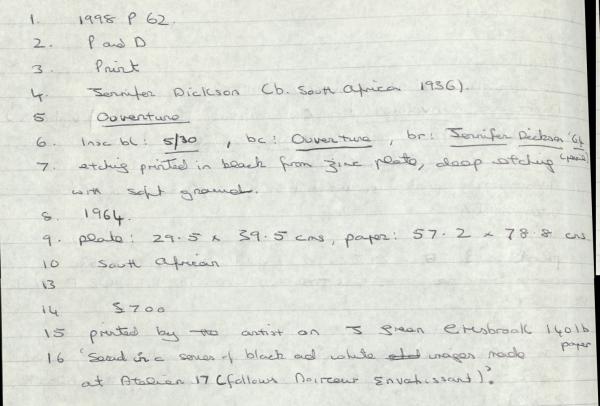 1. 1998 P 62.
2. P and D
3. Print
4. Jennifer Dickson (b. South Africa 1936).
5 Ouverture
6. Insc bl: 5/30 , bc: Ouverture , br: Jennifer Dickson '64
7. etching printed in black from zinc plate, deep etching (pencil)
with soft ground.
8. 1964.
9. plate: 29.5 x 39.5 cms, paper: 57.2 x 78.8 cms
10 South African
13
14 $700
15 printed by artist on J Green Crisbrook 140lb
paper
16 'Second in a series of black and white images made
at Atelier 17 (follows Noirceur Envahissant).'